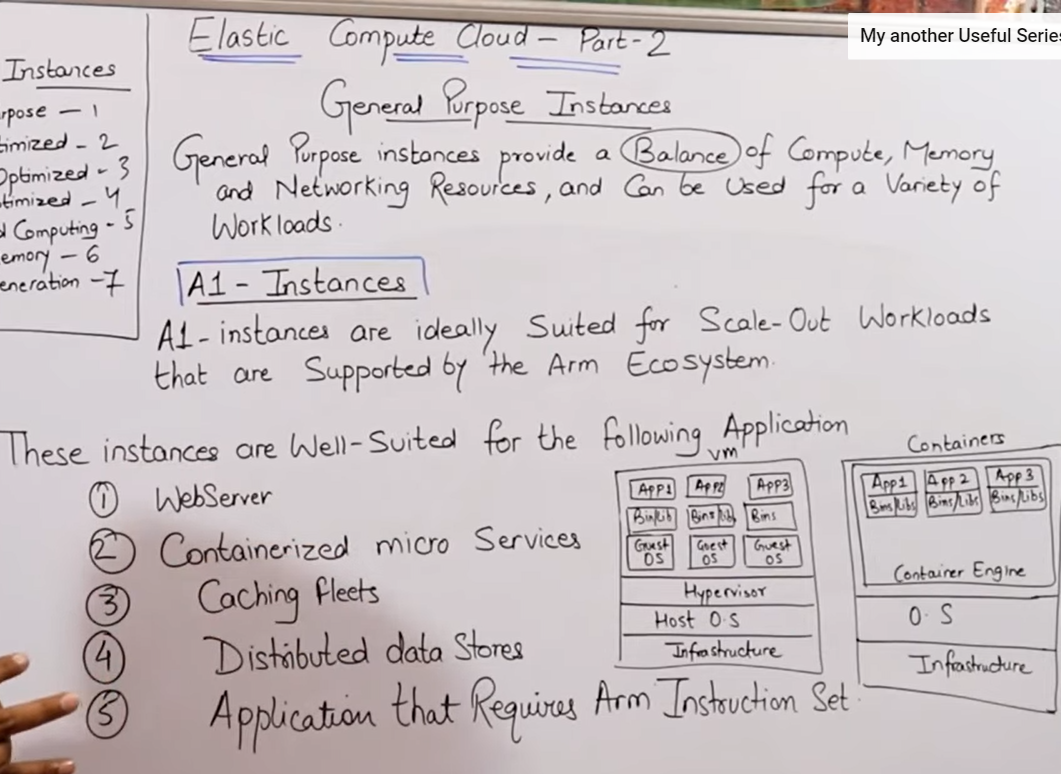 My another Useful Series
Elastic Compute Cloud - Part-2
Instances
rpose - 1
timized - 2
Optimized - 3
timized - 4
d Computing - 5
emory - 6
eneration - 7
General Purpose Instances
General Purpose instances provide a Balance of Compute, Memory
and Networking Resources, and Can be Used for a Variety of
Workloads.
A1 - Instances
A1 - instances are ideally Suited for Scale-Out Workloads
that are Supported by the Arm Ecosystem.
These instances are Well-Suited for the following Application
1 WebServer
2 Containerized micro Services
3 Caching fleets
4 Distributed data Stores
5 Application that Requires Arm Instruction Set
vm
App1 App2 App3
Bin/Lib Bins/Lib Bins
Guest OS Guest OS Guest OS
Hypervisor
Host O.S
Infrastructure
Containers
App1 App 2 App 3
Bins/Libs Bins/Libs Bins/Libs
Container Engine
O.S
Infrastructure